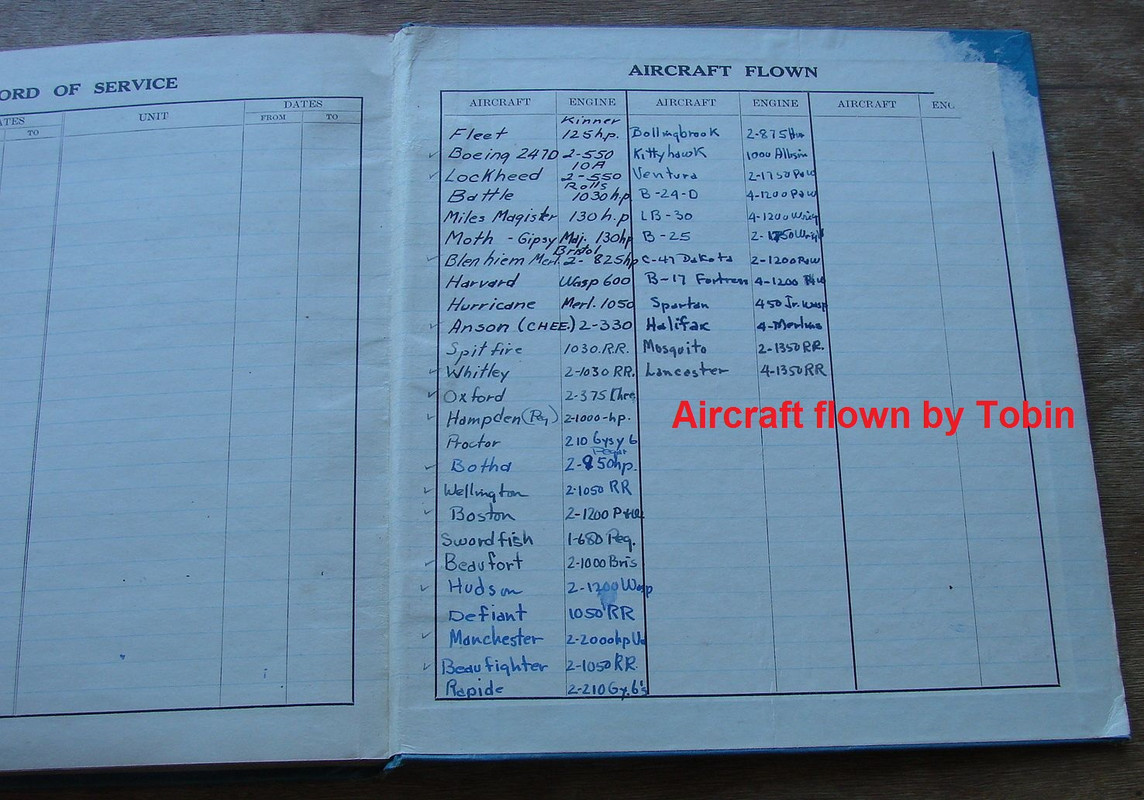 ORD OF SERVICE
DATES
ATES UNIT FROM TO
TO
AIRCRAFT FLOWN
AIRCRAFT ENGINE AIRCRAFT ENGINE AIRCRAFT ENG
Kinner
Fleet 125 hp. Bollingbrook 2-875
Boeing 247D 2-550 Kittyhawk 1000 Allison
10A
Lockheed 2-550 Ventura 2-1750 P&W
Rolls
Battle 1030 hp B-24-D 4-1200 P&W
Miles Magister 130 h.p LB-30 4-1200
Moth - Gipsy Maj. 130hp B-25 2-1750
Bristol
Blenhiem Mer. 2-825hp C-47 Dakota 2-1200 P&W
Harvard Wasp 600 B-17 Fortress 4-1200
Hurricane Merl. 1050 Spartan 450 Jr. Wasp
Anson (CHEE.) 2-330 Halifax 4-Merlins
Spitfire 1030.RR. Mosquito 2-1350 RR.
Whitley 2-1030 RR. Lancaster 4-1350 RR
Oxford 2-375 Chee
Hampden (Peg) 2-1000-hp.
Aircraft flown by Tobin
Proctor 210 Gysy 6
Botha 2-850hp.
Wellington 2-1050 RR
Boston 2-1200
Swordfish 1-680 Peg.
Beaufort 2-1000 Bris
Hudson 2-1200 Wasp
Defiant 1050 RR
Manchester 2-2000hp
Beaufighter 2-1050 RR.
Rapide 2-210 Gy. 6's